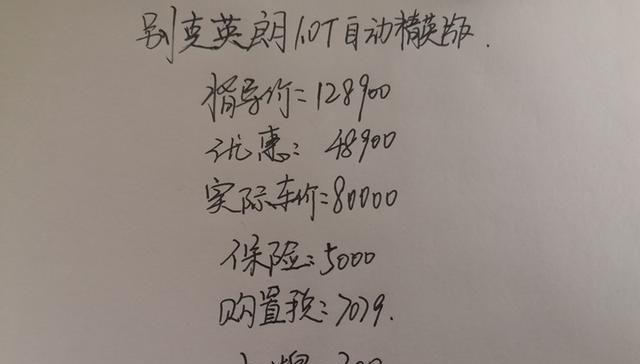 别克英朗1.0T自动精英版.
指导价=128900
优惠: 48900
实际车价=80000
保险: 5000
购置税: 7079.